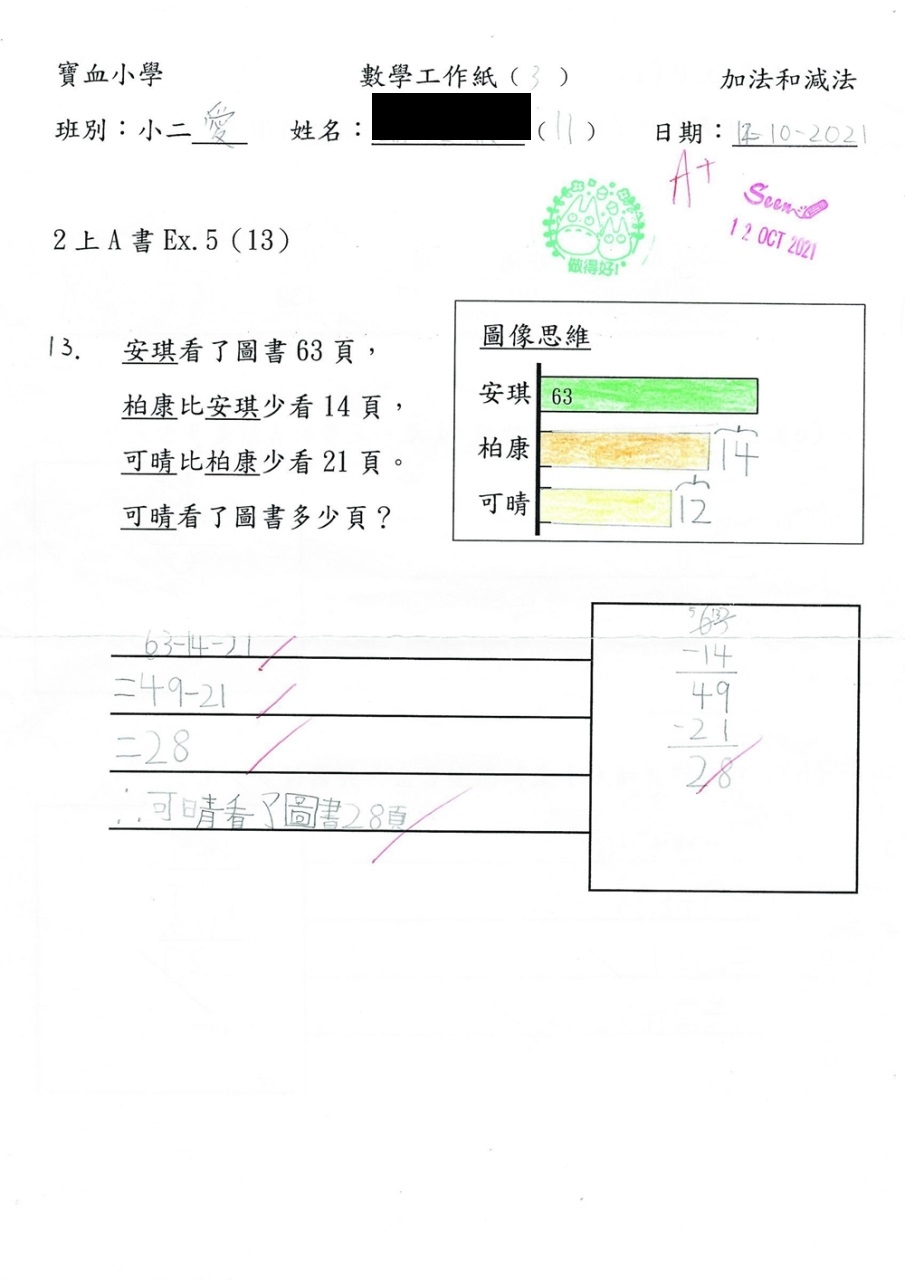 寶血小學 數學工作紙（3） 加法和減法
班別：小二愛 姓名： （11） 日期：12-10-2021
A+
Seen
12 OCT 2021
做得好!
2上A書Ex.5（13）
13. 安琪看了圖書63頁，
柏康比安琪少看14頁，
可晴比柏康少看21頁。
可晴看了圖書多少頁？
圖像思維
安琪 63
柏康 14
可晴 12
63-14-21
=49-21
=28
∴可晴看了圖書28頁
5 13
63
-14
49
-21
28